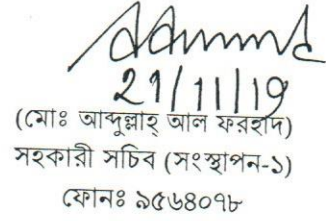 21/11/19
(মোঃ আব্দুল্লাহ্ আল ফরহাদ)
সহকারী সচিব (সংস্থাপন-১)
ফোনঃ ৯৫৬৪০৭৮